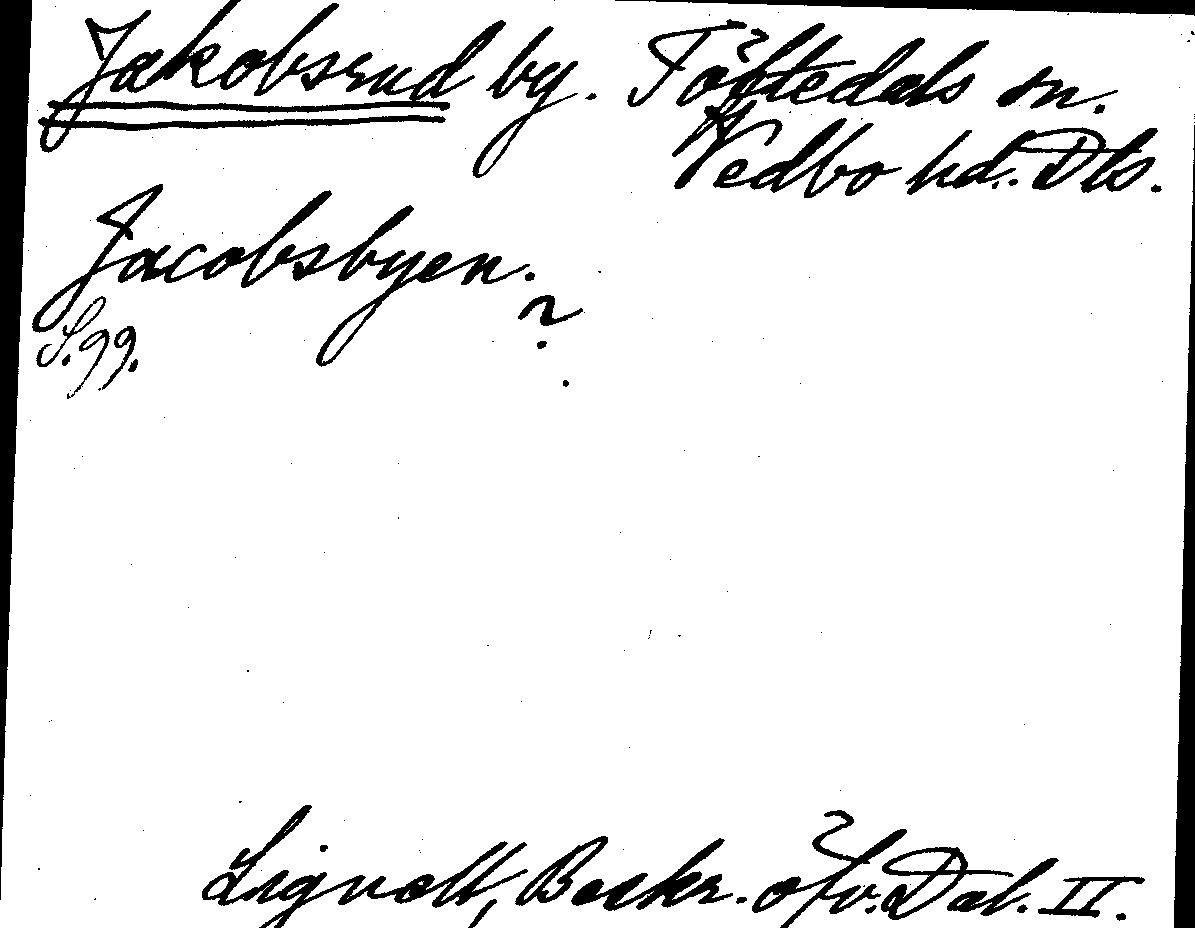 Jakobsrud by. Töftedals sn.
Vedbo hd. Dls.
Jacobsbyen.
?
S. 99.
Lignell, Beskr. öfv. Dal. II.